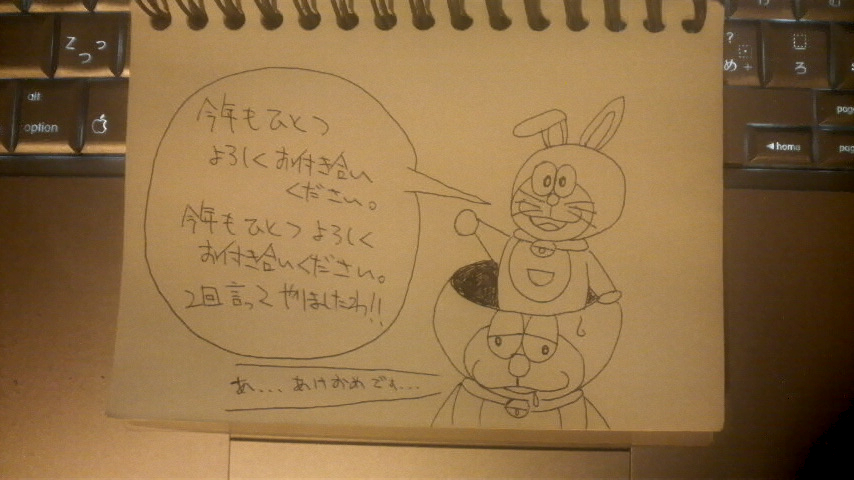 今年もひとつ
よろしくお付き合い
ください。
今年もひとつよろしく
お付き合いください。
2回言ってやりましたわ!!
あ...あけおめです...
Z
っ
つ
alt
option
?
め
+
ろ
home
page
page